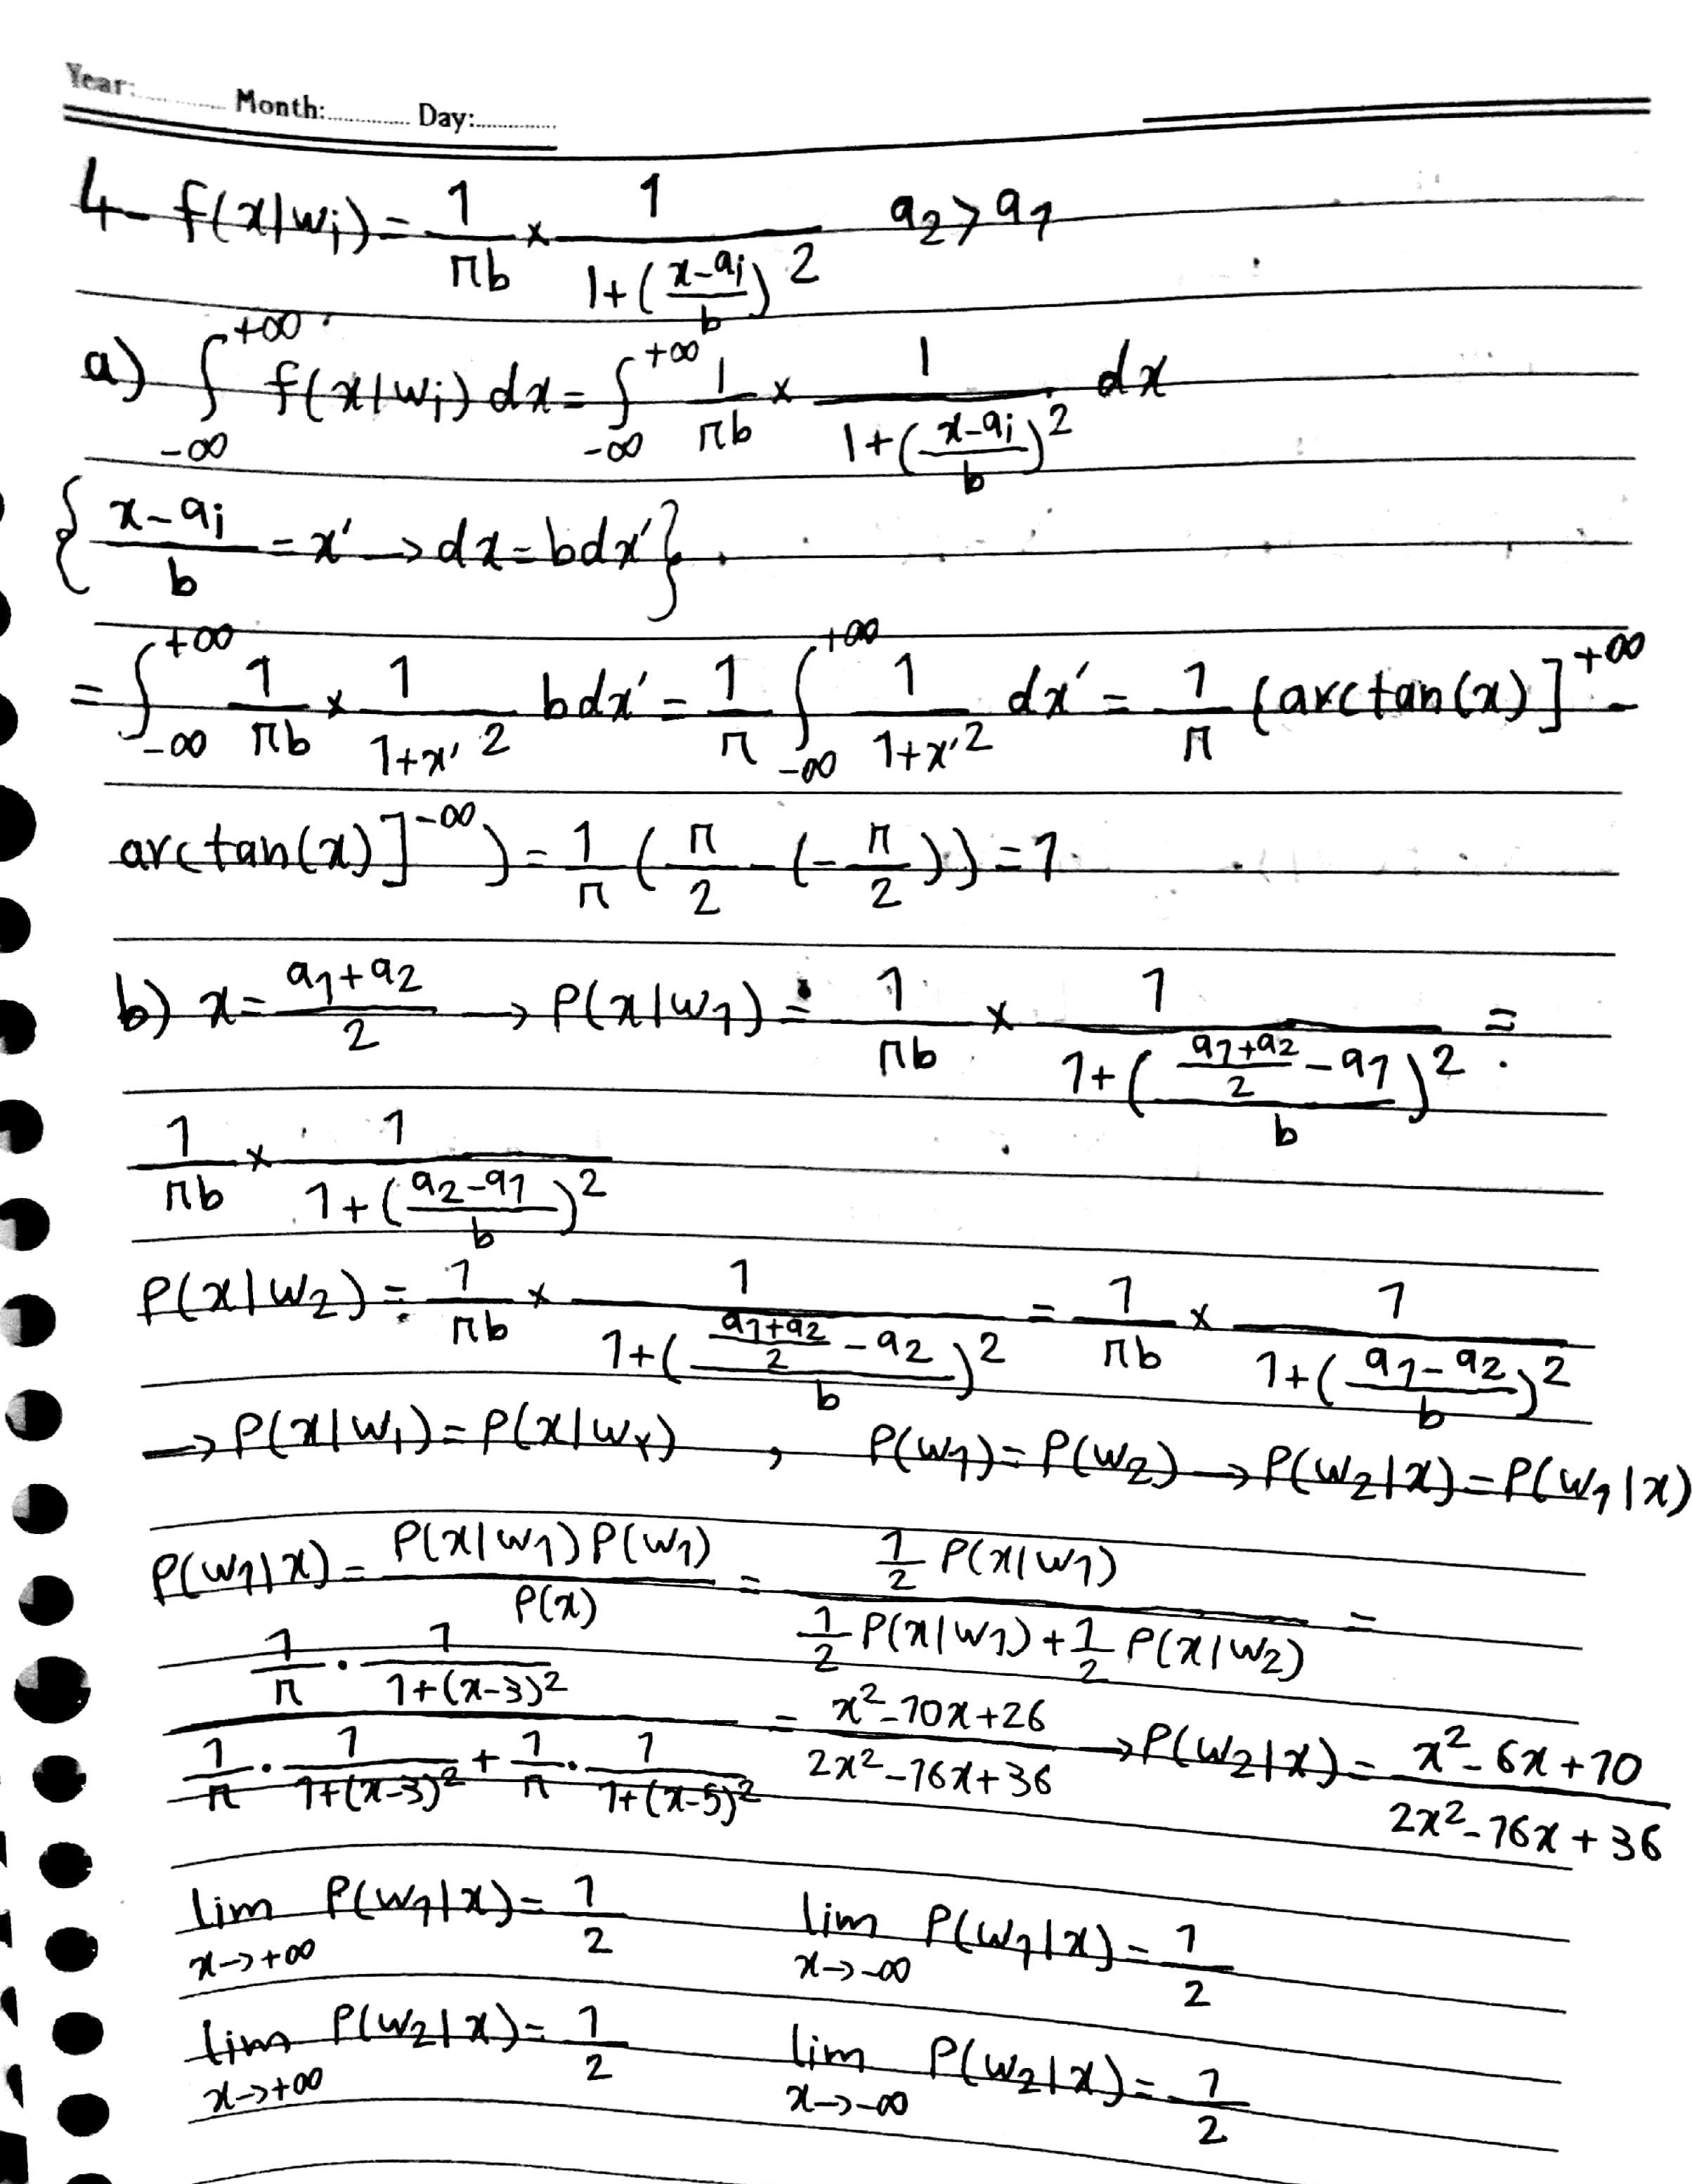 Year:............ Month:............ Day:............
4- f(x|w_i) = 1/πb × 1/(1+((x-a_i)/b)^2)   a_2 > a_1
a) ∫_{-∞}^{+∞} f(x|w_i) dx = ∫_{-∞}^{+∞} 1/πb × 1/(1+((x-a_i)/b)^2) dx
{ (x-a_i)/b = x' → dx = bdx' }
= ∫_{-∞}^{+∞} 1/πb × 1/(1+x'^2) bdx' = 1/π ∫_{-∞}^{+∞} 1/(1+x'^2) dx' = 1/π (arctan(x)]^{+∞} -
arctan(x)]^{-∞}) = 1/π (π/2 - (-π/2)) = 1
b) x = (a_1+a_2)/2 → P(x|w_1) = 1/πb × 1/(1+(((a_1+a_2)/2 - a_1)/b)^2) =
1/πb × 1/(1+((a_2-a_1)/b)^2)
P(x|w_2) = 1/πb × 1/(1+(((a_1+a_2)/2 - a_2)/b)^2) = 1/πb × 1/(1+((a_1-a_2)/b)^2)
→ P(x|w_1) = P(x|w_۲) , P(w_1) = P(w_2) → P(w_2|x) = P(w_1|x)
P(w_1|x) = P(x|w_1)P(w_1)/P(x) = (1/2 P(x|w_1))/(1/2 P(x|w_1) + 1/2 P(x|w_2)) =
(1/π · 1/(1+(x-3)^2))/(1/π · 1/(1+(x-3)^2) + 1/π · 1/(1+(x-5)^2)) = (x^2-10x+26)/(2x^2-16x+36) → P(w_2|x) = (x^2-6x+10)/(2x^2-16x+36)
lim_{x→+∞} P(w_1|x) = 1/2   lim_{x→-∞} P(w_1|x) = 1/2
lim_{x→+∞} P(w_2|x) = 1/2   lim_{x→-∞} P(w_2|x) = 1/2